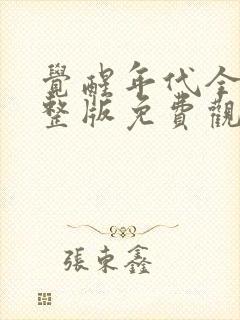 覺醒年代全
整版免費觀
張東鑫